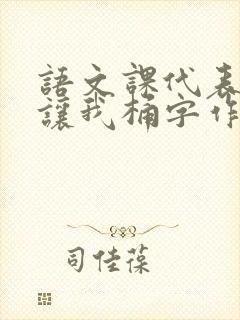 語文課代表
讓我桶字作
司佳葆